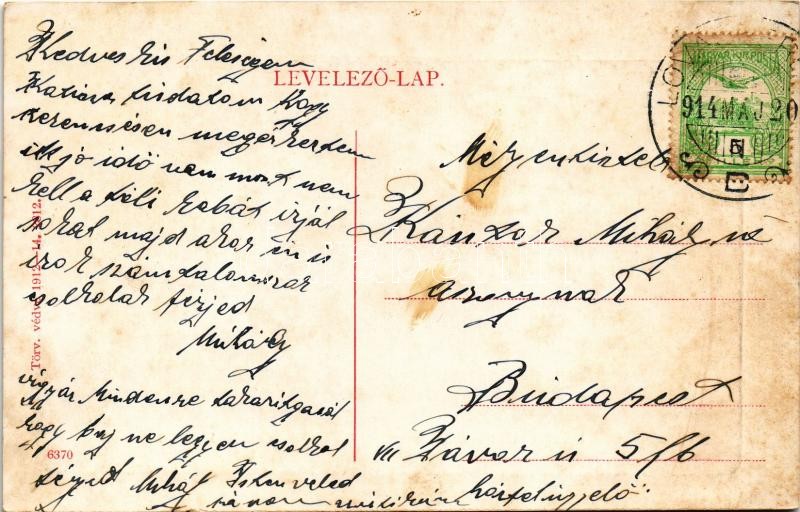 LEVELEZŐ-LAP.
Kedves kis Feleségem
tudatom hogy
szerencsésen megérkeztem
itt jó idő van most nem
kell a téli kabát írjál
sokat majd akor én is
irok számtalanszor
csokolak férjed
Mihály
vigyáz Mindenre
hogy baj ne legyen csokol
férjed Mihály Isten veled
Kántor Mihály né
asszonynak
Budapest
VII Távar ú 5/6
914 MÁJ 20
MAGYAR KIR. POSTA
Törv. védve 1912.—14. 1912.
6370